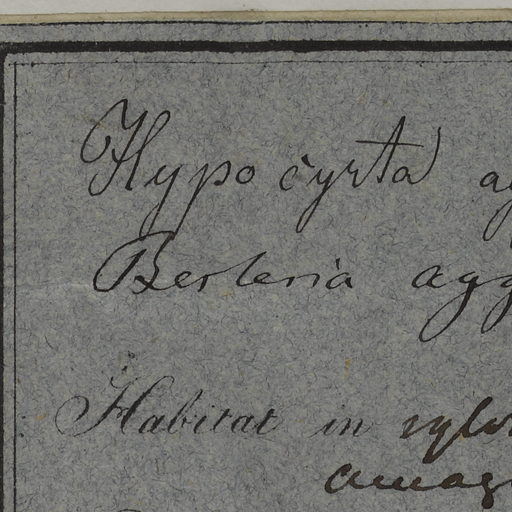 Hypocyrta ag
Besleria agg
Habitat in sylv
amag